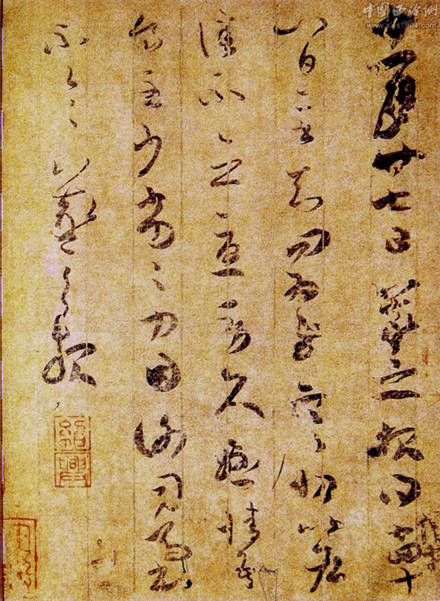 十一月廿七日羲之報得十四十
八日二書知問為慰寒切比各
佳不念憂勞久懸情吾
食至少劣劣力因謝司馬書
不一一羲之報
紹興
中国西泠网